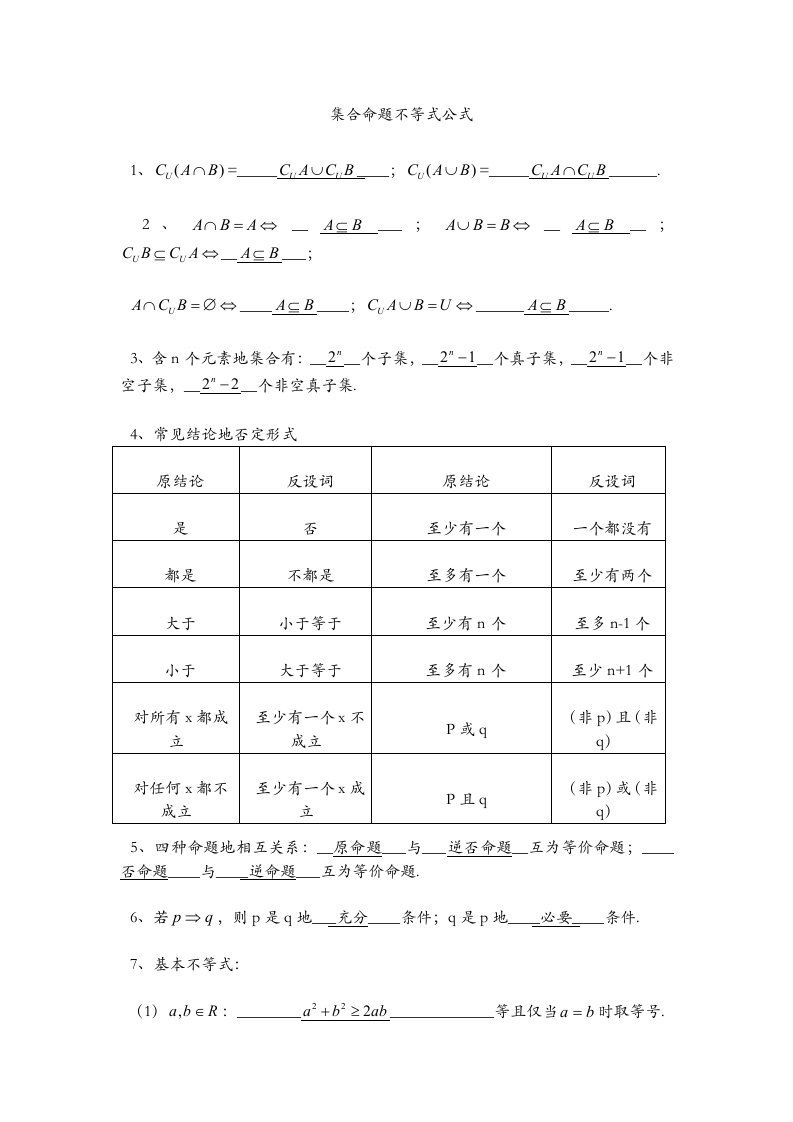 集合命题不等式公式
1、C_U(A∩B)=_____C_U A∪C_U B____；C_U(A∪B)=_____C_U A∩C_U B______.
2、A∩B=A⇔__A⊆B___；A∪B=B⇔__A⊆B__；
C_U B⊆C_U A⇔__A⊆B___；
A∩C_U B=∅⇔____A⊆B____；C_U A∪B=U⇔______A⊆B_____.
3、含n个元素地集合有：__2ⁿ__个子集，__2ⁿ−1__个真子集，__2ⁿ−1__个非
空子集，__2ⁿ−2__个非空真子集.
4、常见结论地否定形式
原结论 反设词 原结论 反设词
是 否 至少有一个 一个都没有
都是 不都是 至多有一个 至少有两个
大于 小于等于 至少有n个 至多n-1个
小于 大于等于 至多有n个 至少n+1个
对所有x都成 至少有一个x不 P或q （非p)且（非
立 成立 q）
对任何x都不 至少有一个x成 P且q （非p)或（非
成立 立 q）
5、四种命题地相互关系：__原命题___与___逆否命题__互为等价命题；____
否命题____与____逆命题___互为等价命题.
6、若p⇒q，则p是q地___充分____条件；q是p地____必要____条件.
7、基本不等式：
（1）a,b∈R：________a²+b²≥2ab_____________等且仅当a=b时取等号.